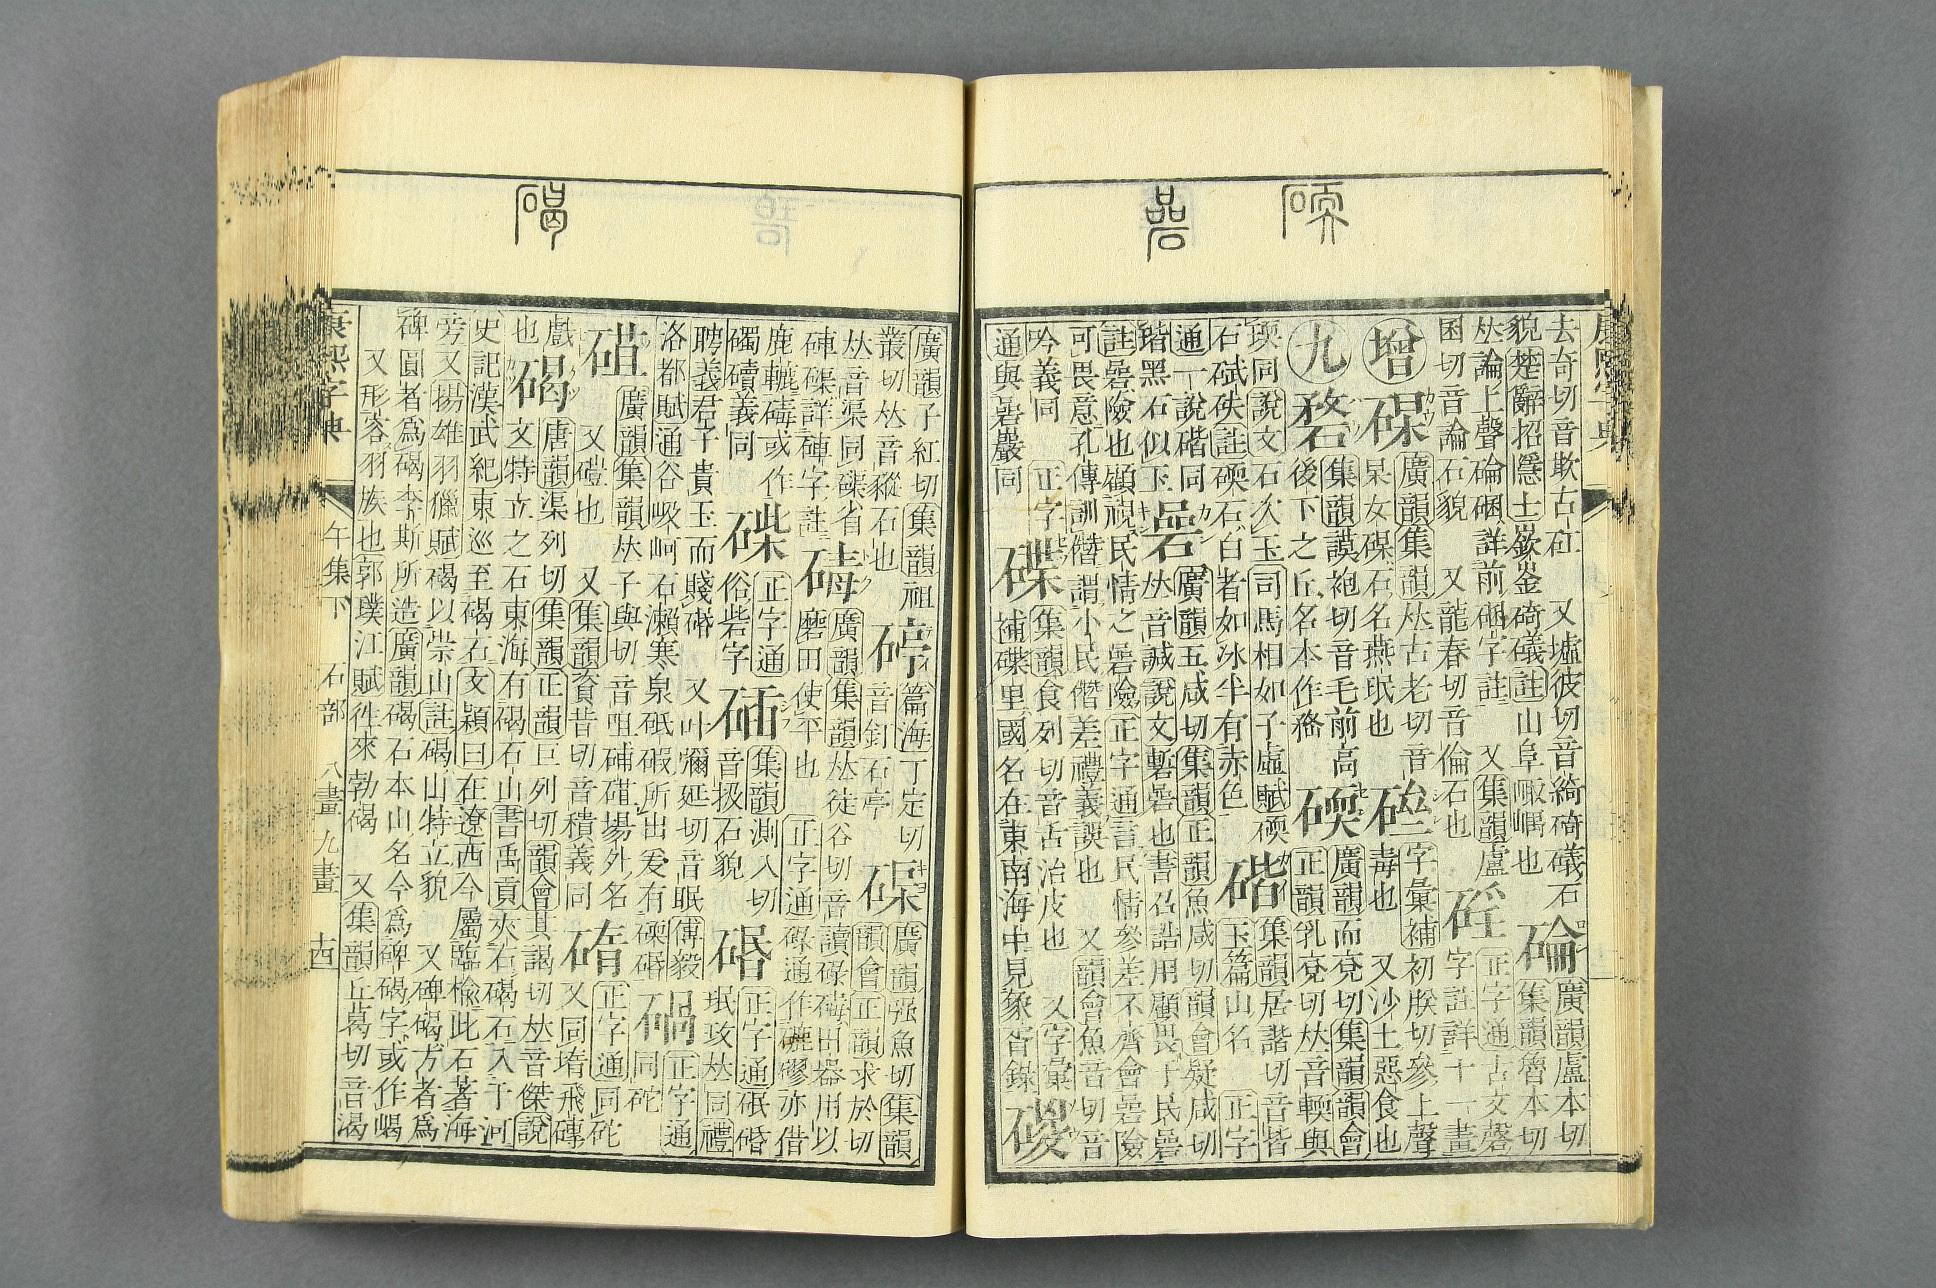 去奇切音欹古矼 又墟彼切音綺碕礒石
貌楚辭招隱士嶔崟碕礒註山阜峨嵎也
碖
廣韻盧本切
集韻魯本切
𠀤論上聲碖硱詳前硱字註 又集韻盧
困切音論石貌 又龍春切音倫石也
正字通古文磬
字註詳十一畫
增
廣韻集韻𠀤古老切音
杲女石名燕珉也
字彙補初朕切參上聲
毒也 又沙土惡食也
九
集韻謨袍切音毛前高
後下之丘名本作堥
碝
廣韻而兗切集韻韻會
正韻乳兗切𠀤音輭與
瑌同說文石次玉司馬相如子虛賦碝
石碔砆註碝石白者如冰半有赤色
集韻居諧切音皆
玉篇山名 正字
通一說同
瑎黑石似玉
碞
廣韻五咸切集韻正韻魚咸切韻會疑咸切
𠀤音諴說文磛碞也書召誥用顧畏于民碞
註碞險也顧視民情之碞險正字通言民情參差不齊會碞險
可畏意孔傳訓僭謂小民僭差禮義誤也 又韻會魚音切音
吟義同 正字
通與碞巖同
碟
集韻食列切音舌治皮也 又字彙
補碟里國名在東南海中見象胥錄
廣韻子紅切集韻祖
叢切𠀤音石也
碠
篇海丁定切
音釘石亭
廣韻强魚切集韻
韻會正韻求於切
𠀤音渠同磲省
硨磲詳硨字註
碡
廣韻集韻𠀤徒谷切音讀碌碡田器用以
磨田使平也 正字通碌通作磟亦借
鹿轆碡或作
義同
正字通
俗砦字
集韻測入切
音扱石貌
碈
正字通砥碈
珉玫𠀤同禮
聘義君子貴玉而賤碈 又叶彌延切音眠傅毅
洛都賦通谷岋岢石瀨寒泉砥碬所出爰有碝碈
碢
正字通
同砣
廣韻集韻𠀤子與切音咀
又礎也 又集韻資昔切音積義同
正字通同砣
又同堶飛磚
戲
也
碣
唐韻渠列切集韻正韻巨列切韻會其謁切𠀤音傑說
文特立之石東海有碣石山書禹貢夾右碣石入于河
史記漢武紀東巡至碣石文穎曰在遼西今屬臨榆此石著海
旁又揚雄羽獵賦碣以崇山註碣山特立貌 又碑碣方者爲
碑圓者爲碣李斯所造廣韻碣石本山名今爲碑碣字或作嵑
又形容羽族也郭璞江賦往來勃碣 又集韻丘葛切音渴
康熙字典 午集下 石部 八畫九畫